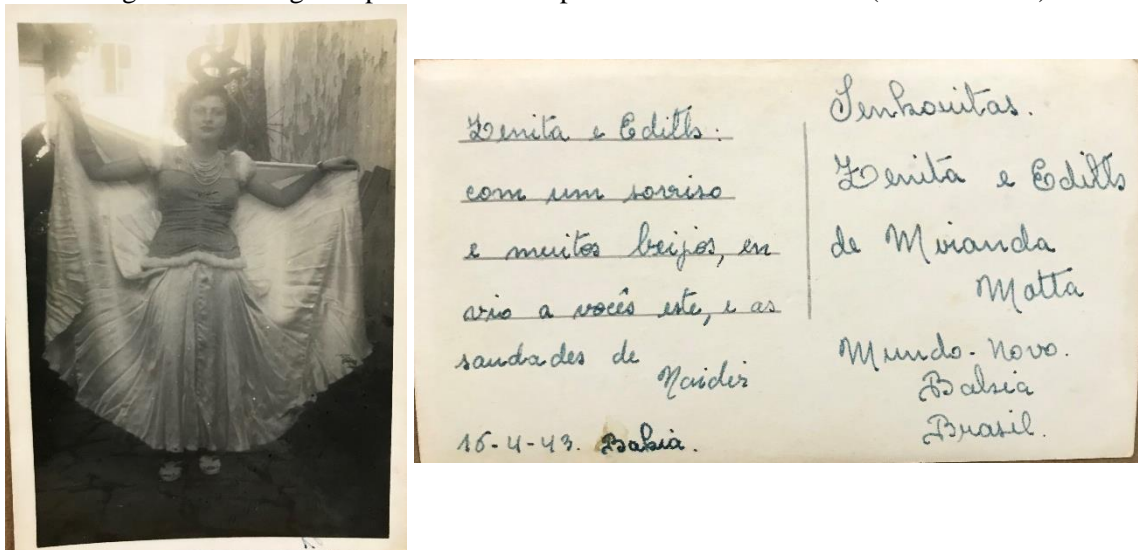 Zenita e Edith:
com um sorriso
e muitos beijos, en
vio a vocês este, e as
saudades de
Naider
16-4-43. Bahia.
Senhoritas.
Zenita e Edith
de Miranda
Matta
Mundo-Novo.
Bahia
Brasil.